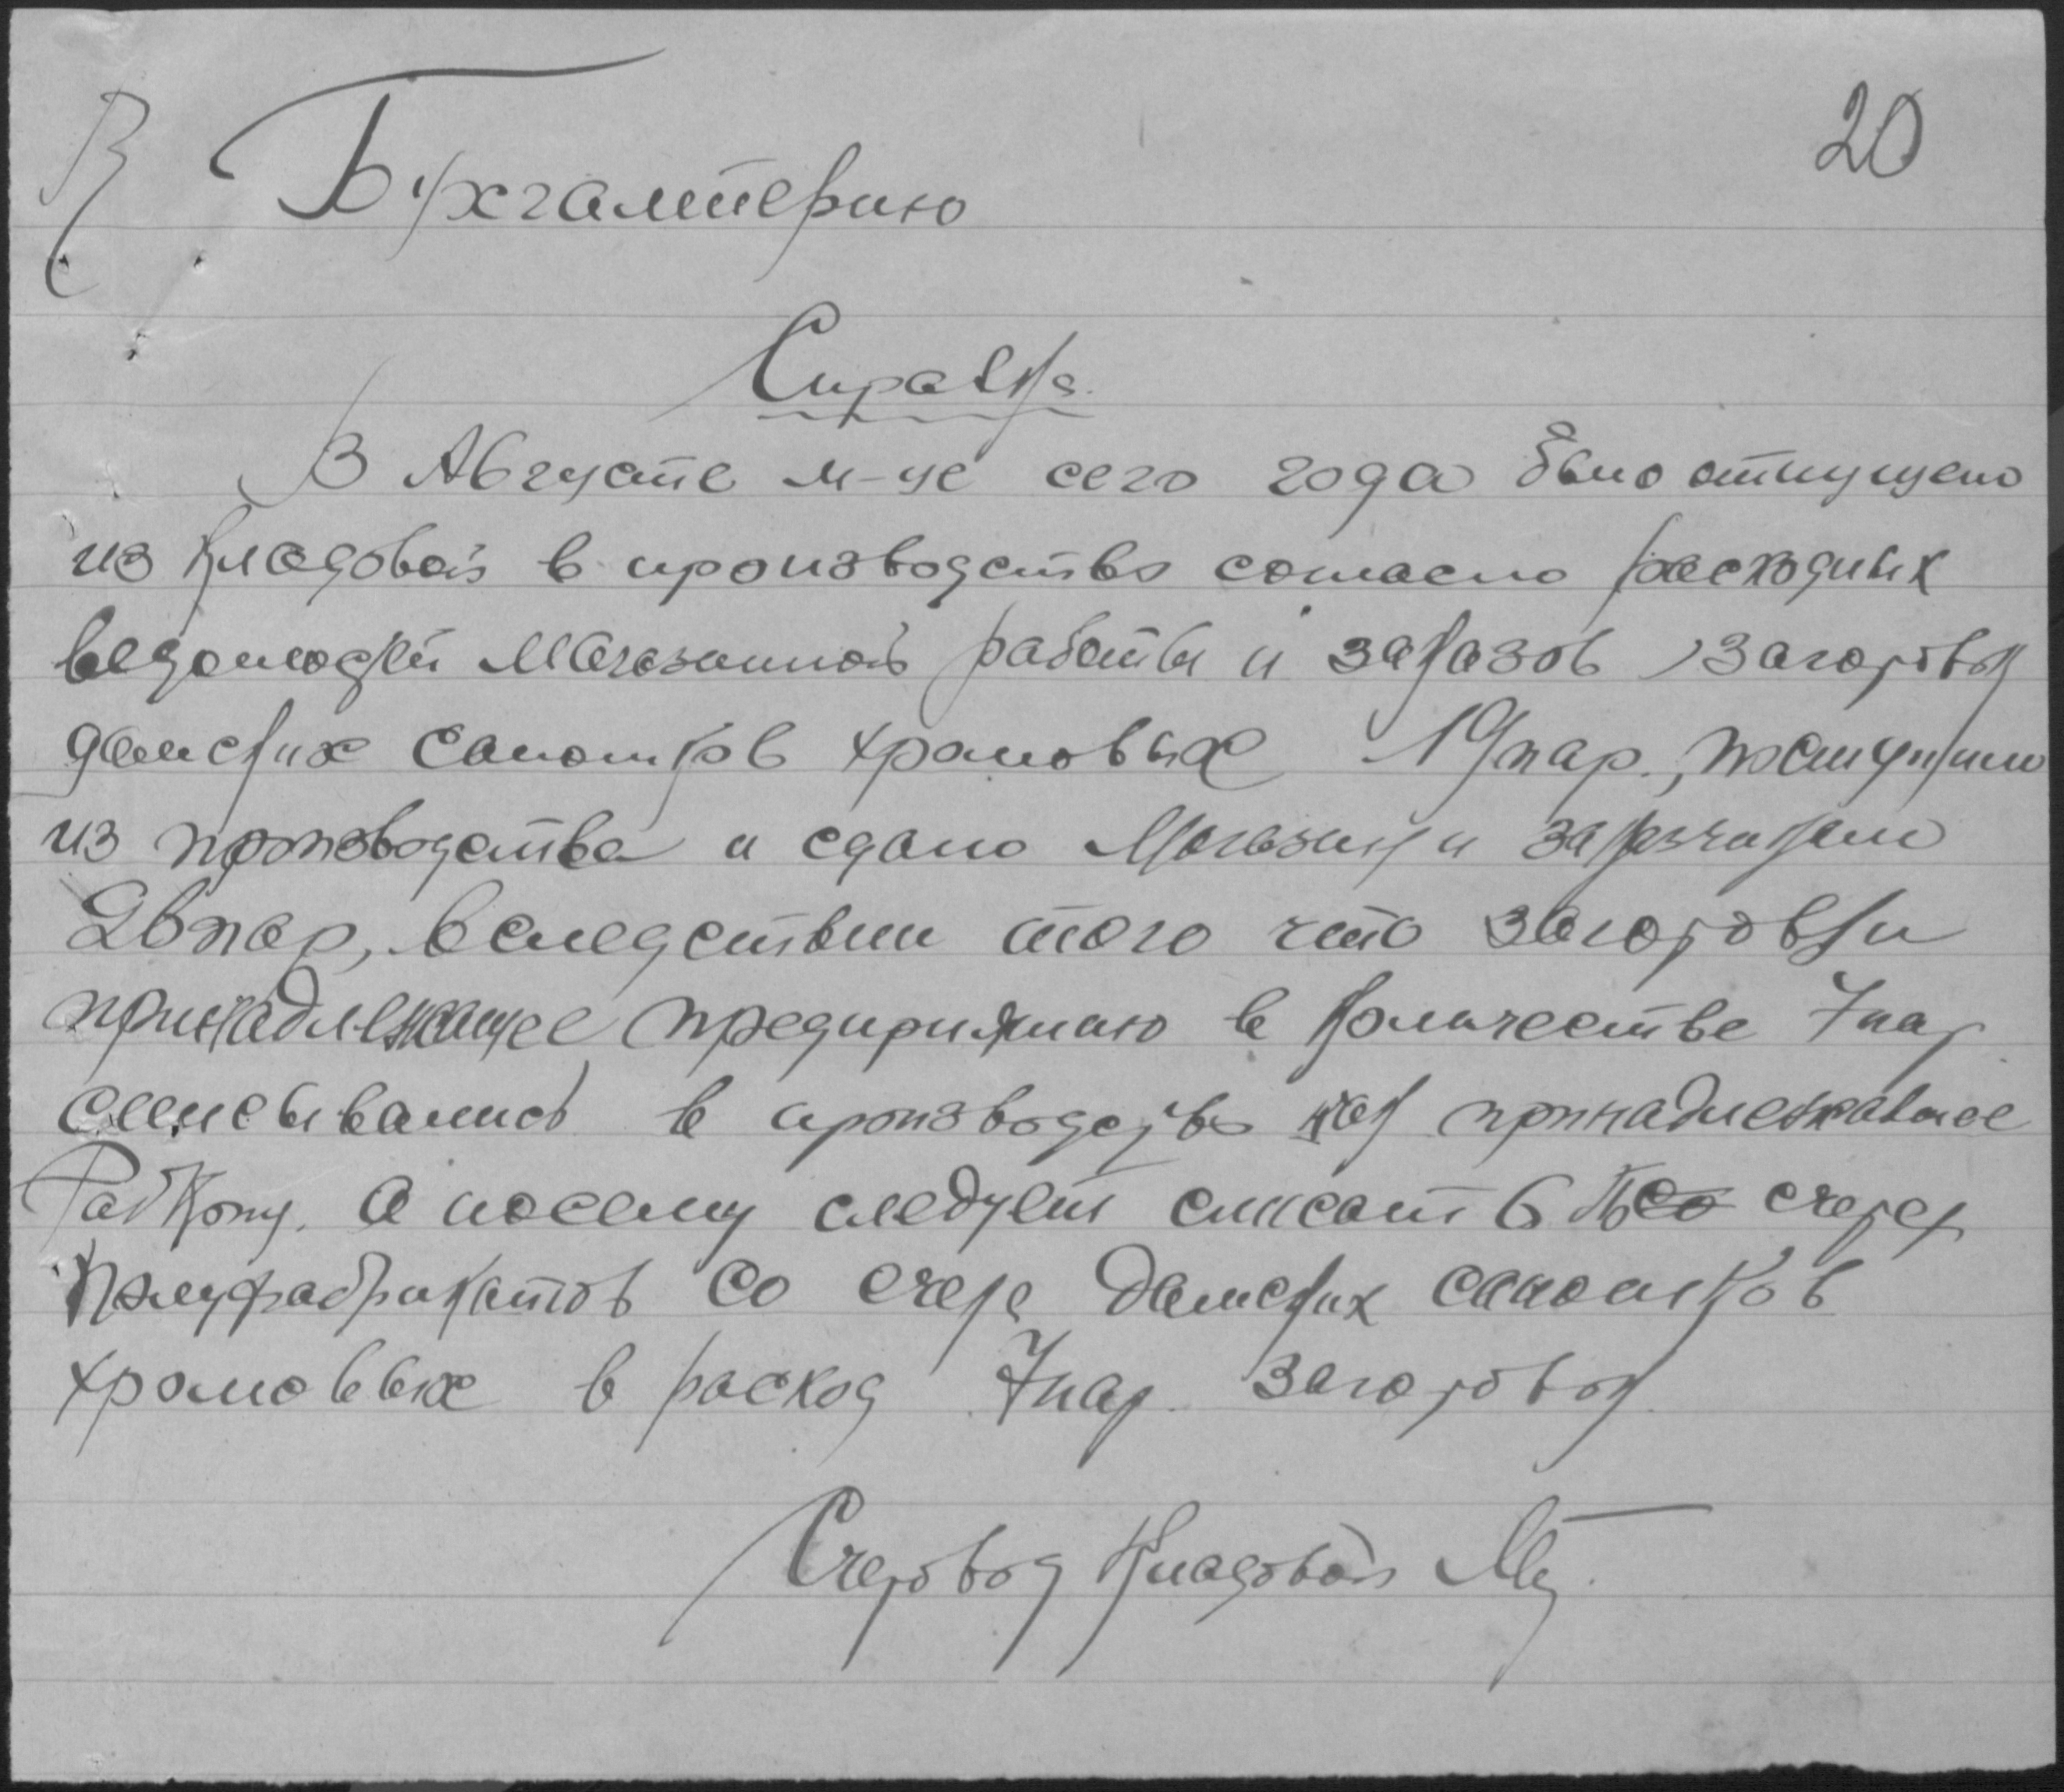 20
В Бухгалтерию
Справка.
В Августе м-це сего года было отпущено
из кладовой в производство согласно расходных
ведомостей Магазинной работы и заказов заготовок
дамских сапожков хромовых 19 пар.,
из производства и сдано Магазину и заказчикам
26 пар, вследствии того что заготовки
принадлежащее предприятию в количестве 7 пар
списывались в производство как принадлежавшее
РабКопу. А посему следует списат
полуфабрикатов со счета дамских сапожков
хромовых в расход 7 пар заготовок
Счетовод Кладовой